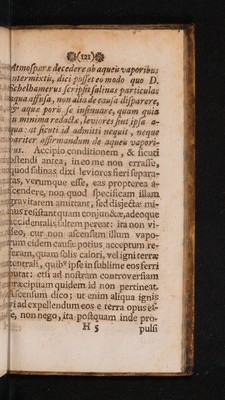 (121)
Atmosphæræ decedere ab aqueis vaporibus
intermixtis, dici posset eo modo quo D.
Schelhamerus scripsit salinas particulas
aqua affusa, non alia de causa disparere,
aquæ poris se insinuare, quam quia
minima redactæ, leviores sint ipsa a-
qua: at sicuti id admitti nequit, neque
pariter affirmandum de aqueis vapori-
bus. Accipio conditionem, & sicuti
ostendi antea, in eo me non errasse,
quod salinas dixi leviores fieri separa-
tas, verumque esse, eas propterea a-
scendere, non quod specificam illam
gravitatem amittant, sed disjectæ mi-
nus resistant quam conjunctæ, adeoque
accidentalis saltem pereat: ita non vi-
deo, cur non ascensum illum vapo-
rum eidem causæ potius acceptum re-
feram, quam solis calori, vel igni terræ
centrali, quibus ipse in sublime eos ferri
putat: etsi ad nostram controversiam
præcipuam quidem id non pertineat.
Ascensum dico; ut enim aliqua ignis
vi ad expellendum eos e terra opus es-
se, non nego, ita postquam inde pro-
H 5 pulsi